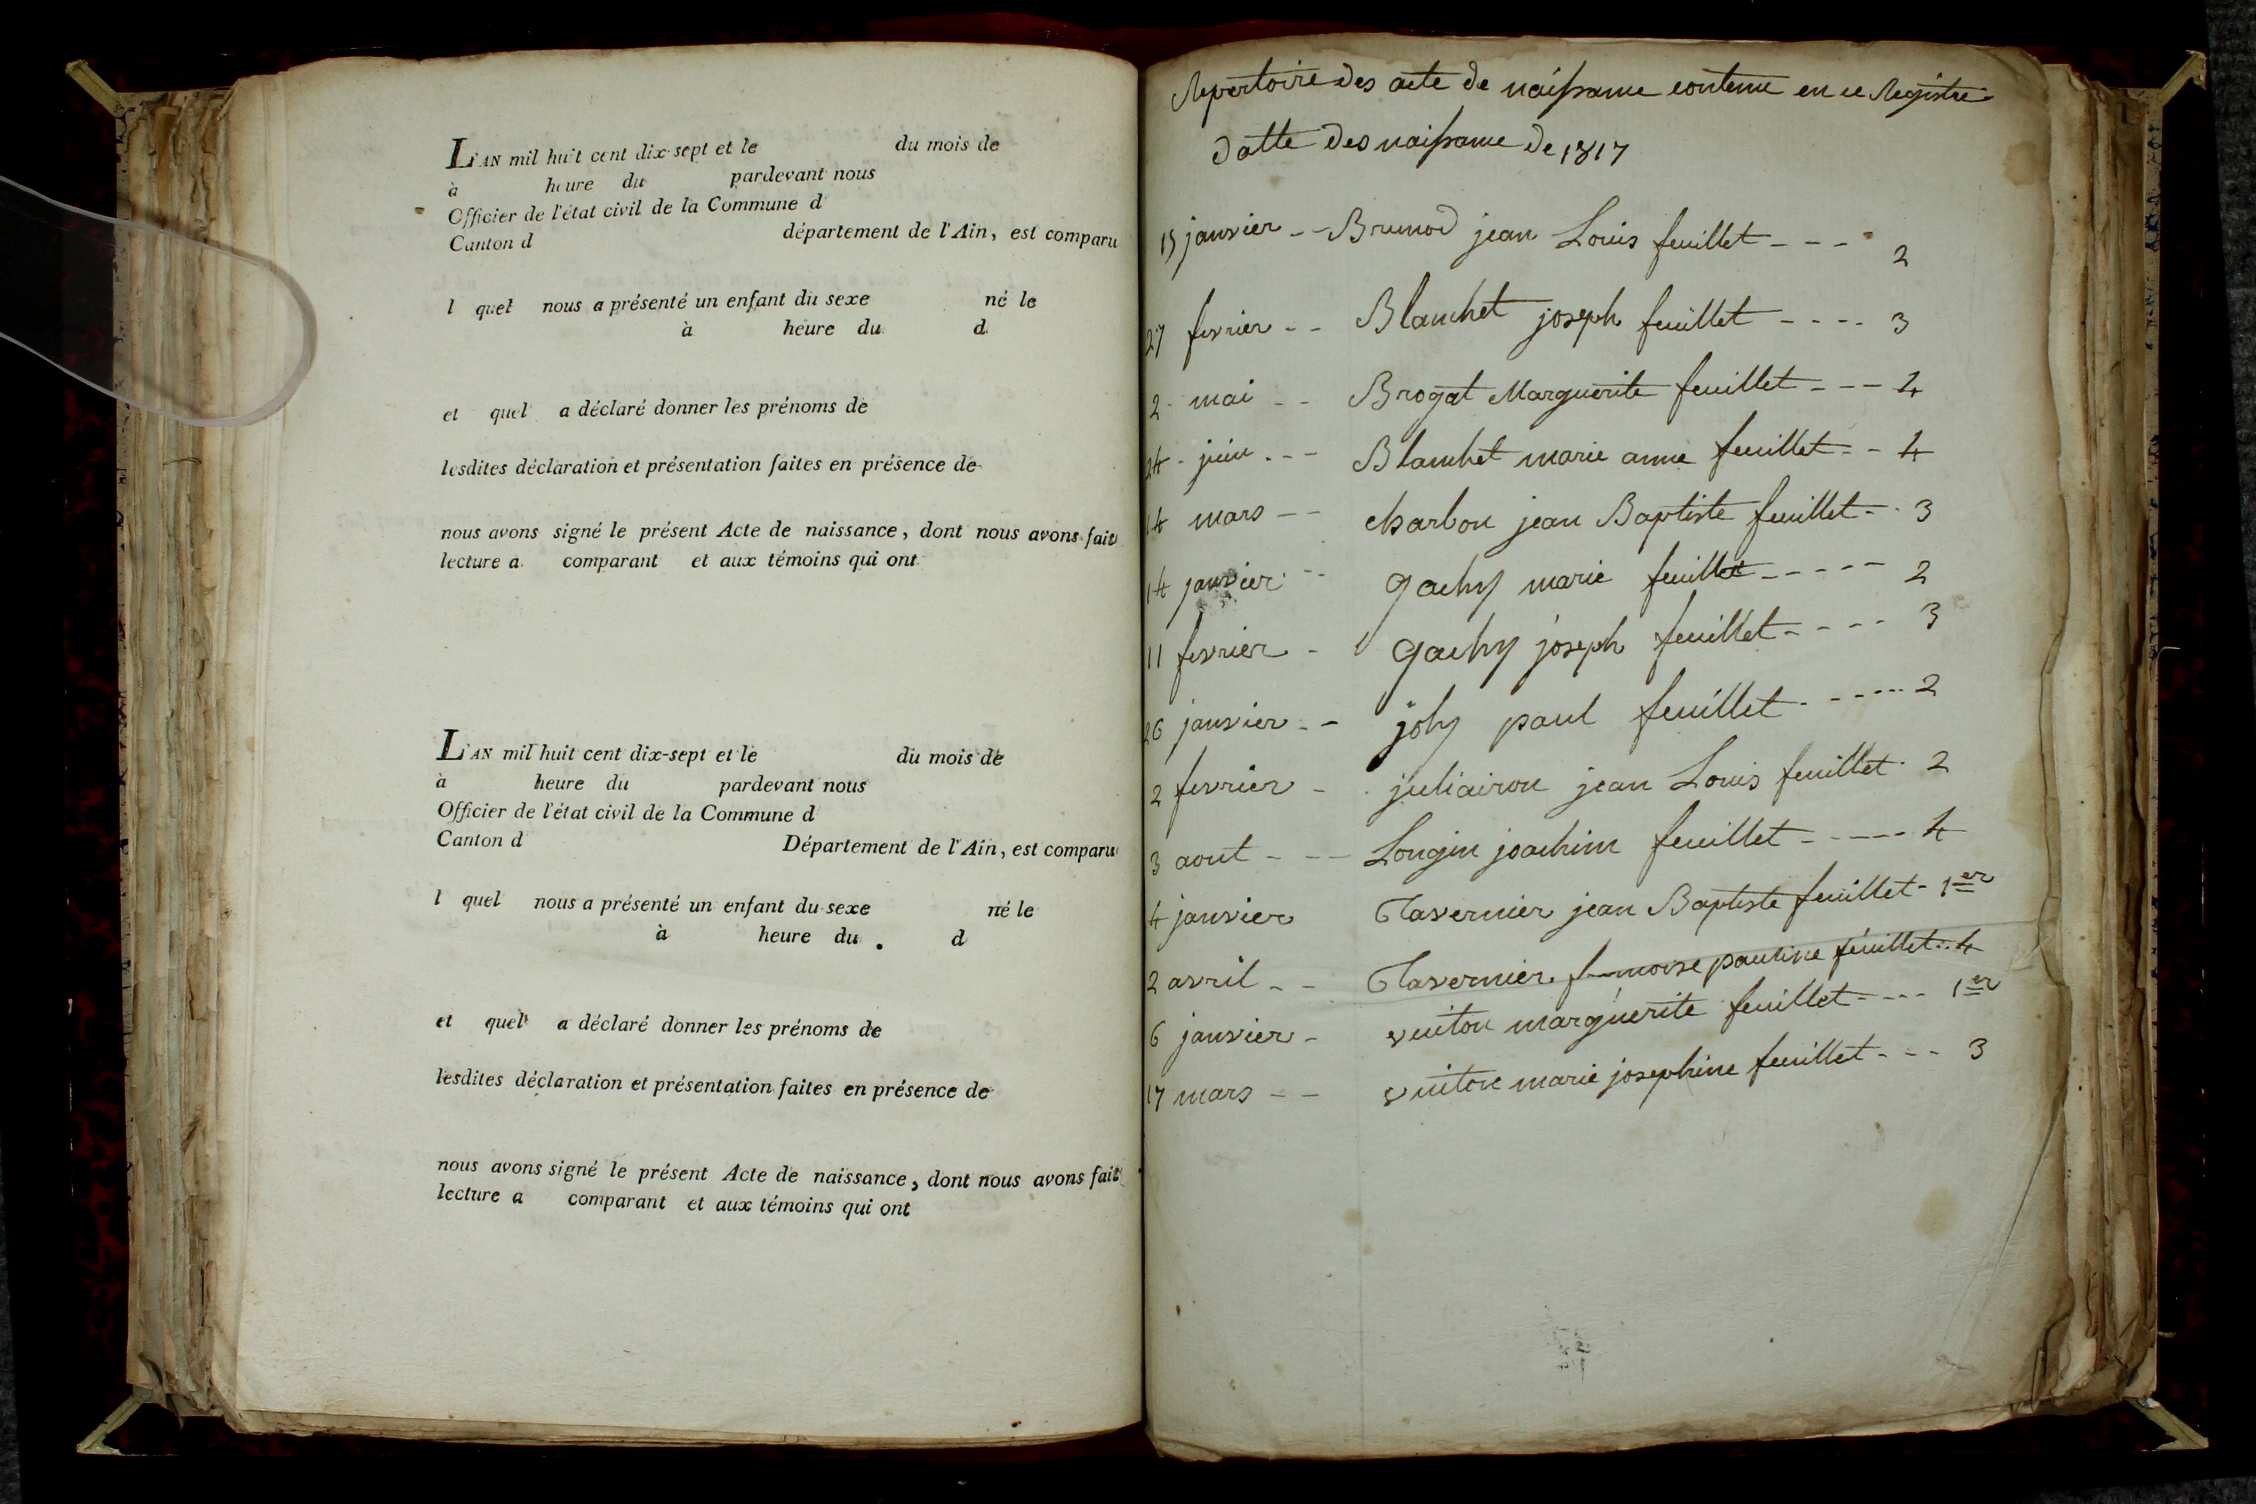 L'AN mil huit cent dix-sept et le du mois de
à heure du pardevant nous
Officier de l'état civil de la Commune d
Canton d département de l'Ain, est comparu
l quel nous a présenté un enfant du sexe né le
à heure du d
et quel a déclaré donner les prénoms de
lesdites déclaration et présentation faites en présence de
nous avons signé le présent Acte de naissance, dont nous avons fait
lecture a comparant et aux témoins qui ont
L'AN mil huit cent dix-sept et le du mois de
à heure du pardevant nous
Officier de l'état civil de la Commune d
Canton d Département de l'Ain, est comparu
l quel nous a présenté un enfant du sexe né le
à heure du d
et quel a déclaré donner les prénoms de
lesdites déclaration et présentation faites en présence de
nous avons signé le présent Acte de naissance, dont nous avons fait
lecture a comparant et aux témoins qui ont
Repertoire des acte de naissance contenu en ce Registre
datte des naissance de 1817
15 janvier -- Brunod jean Louis feuillet --- 2
27 fevrier -- Blanchet joseph feuillet ---- 3
2 mai -- Brogat Marguerite feuillet --- 4
24 juin --- Blanchet marie anne feuillet -- 4
14 mars -- charbon jean Baptiste feuillet -- 3
14 janvier -- gachy marie feuillet ----- 2
11 fevrier - gachy joseph feuillet ---- 3
26 janvier -- joly paul feuillet ----- 2
2 fevrier - juliairon jean Louis feuillet 2
3 aout --- Longin joachim feuillet ----- 4
4 janvier Tavernier jean Baptiste feuillet - 1er
2 avril -- Tavernier pauline feuillet -- 4
6 janvier - vuiton marguerite feuillet ---- 1er
17 mars -- vuiton marie josephine feuillet --- 3